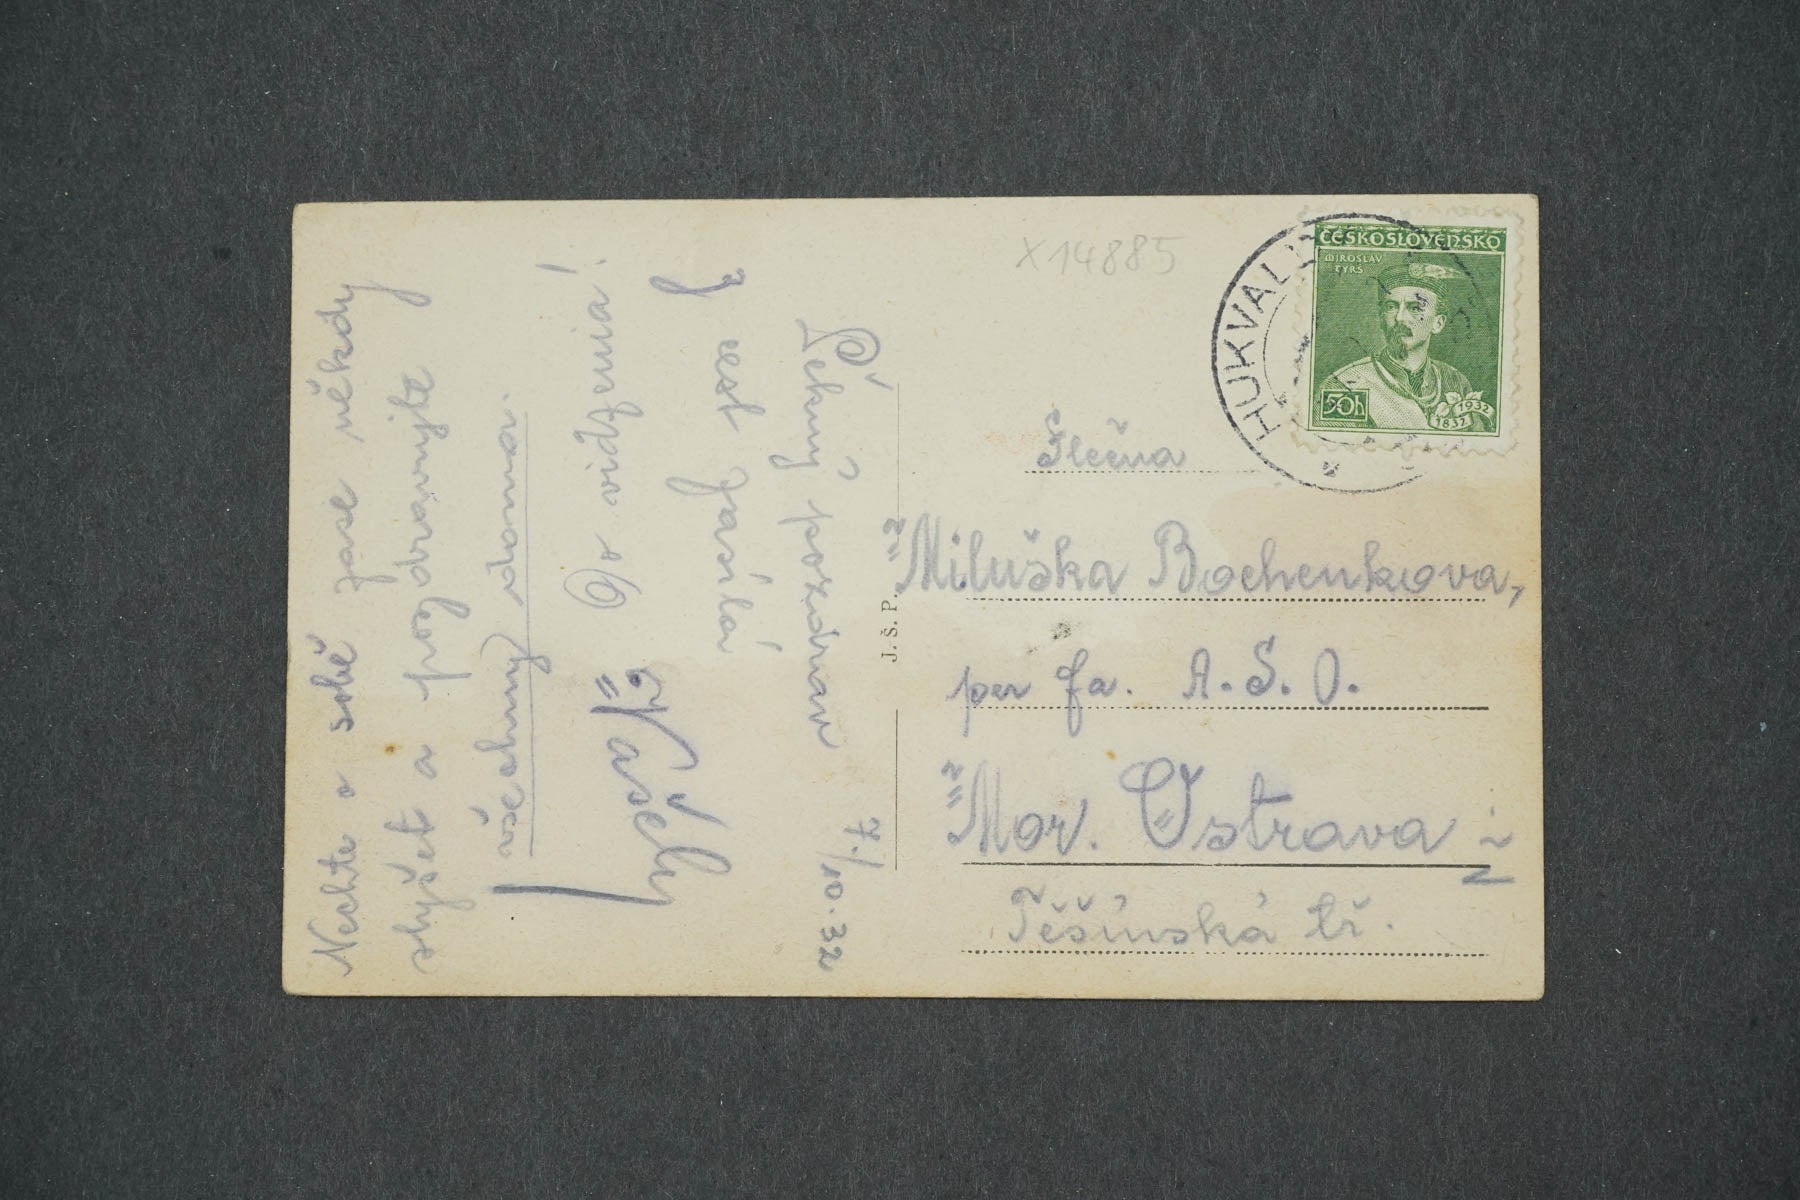 X 14885
ČESKOSLOVENSKO
MIROSLAV
TYRŠ
50h
1832 1932
HUKVAL
7./10.32
Pěkný pozdrav
z cest zasílá
Vašek
Do vidzenia!
Nechte o sobě zase někdy
slyšet a pozdravujte
všechny doma.
J. Š. P.
Slečna
Miluška Bochenkova,
per fa. A. S. O.
Mor. Ostrava
Těšínská tř.